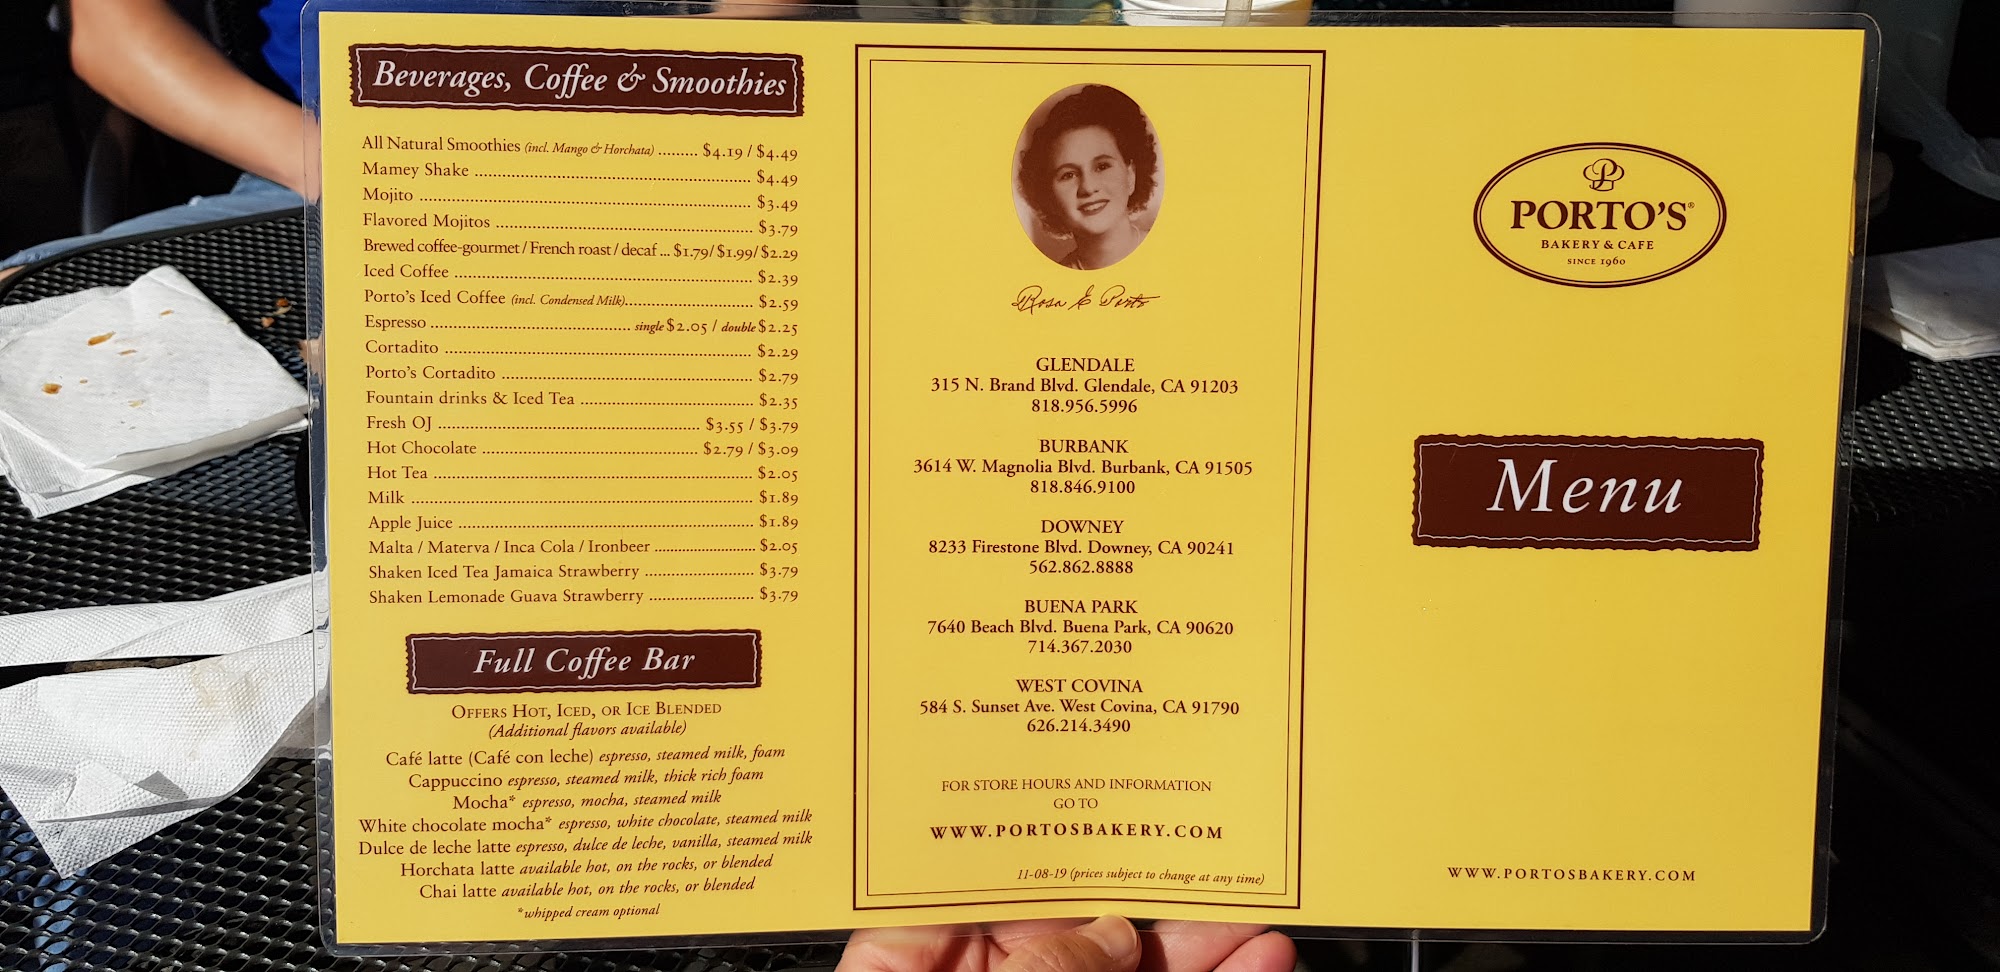 Beverages, Coffee & Smoothies
All Natural Smoothies (incl. Mango & Horchata) ......... $4.19 / $4.49
Mamey Shake ..... $4.49
Mojito ..... $3.49
Flavored Mojitos ..... $3.79
Brewed coffee-gourmet / French roast / decaf ... $1.79/ $1.99/ $2.29
Iced Coffee ..... $2.39
Porto's Iced Coffee (incl. Condensed Milk)..... $2.59
Espresso ..... single $2.05 / double $2.25
Cortadito ..... $2.29
Porto's Cortadito ..... $2.79
Fountain drinks & Iced Tea ..... $2.35
Fresh OJ ..... $3.55 / $3.79
Hot Chocolate ..... $2.79 / $3.09
Hot Tea ..... $2.05
Milk ..... $1.89
Apple Juice ..... $1.89
Malta / Materva / Inca Cola / Ironbeer ..... $2.05
Shaken Iced Tea Jamaica Strawberry ..... $3.79
Shaken Lemonade Guava Strawberry ..... $3.79
Full Coffee Bar
Offers Hot, Iced, or Ice Blended
(Additional flavors available)
Café latte (Café con leche) espresso, steamed milk, foam
Cappuccino espresso, steamed milk, thick rich foam
Mocha* espresso, mocha, steamed milk
White chocolate mocha* espresso, white chocolate, steamed milk
Dulce de leche latte espresso, dulce de leche, vanilla, steamed milk
Horchata latte available hot, on the rocks, or blended
Chai latte available hot, on the rocks, or blended
*whipped cream optional
Rosa E Porto
GLENDALE
315 N. Brand Blvd. Glendale, CA 91203
818.956.5996
BURBANK
3614 W. Magnolia Blvd. Burbank, CA 91505
818.846.9100
DOWNEY
8233 Firestone Blvd. Downey, CA 90241
562.862.8888
BUENA PARK
7640 Beach Blvd. Buena Park, CA 90620
714.367.2030
WEST COVINA
584 S. Sunset Ave. West Covina, CA 91790
626.214.3490
FOR STORE HOURS AND INFORMATION
GO TO
WWW.PORTOSBAKERY.COM
11-08-19 (prices subject to change at any time)
P
PORTO'S®
BAKERY & CAFE
SINCE 1960
Menu
WWW.PORTOSBAKERY.COM